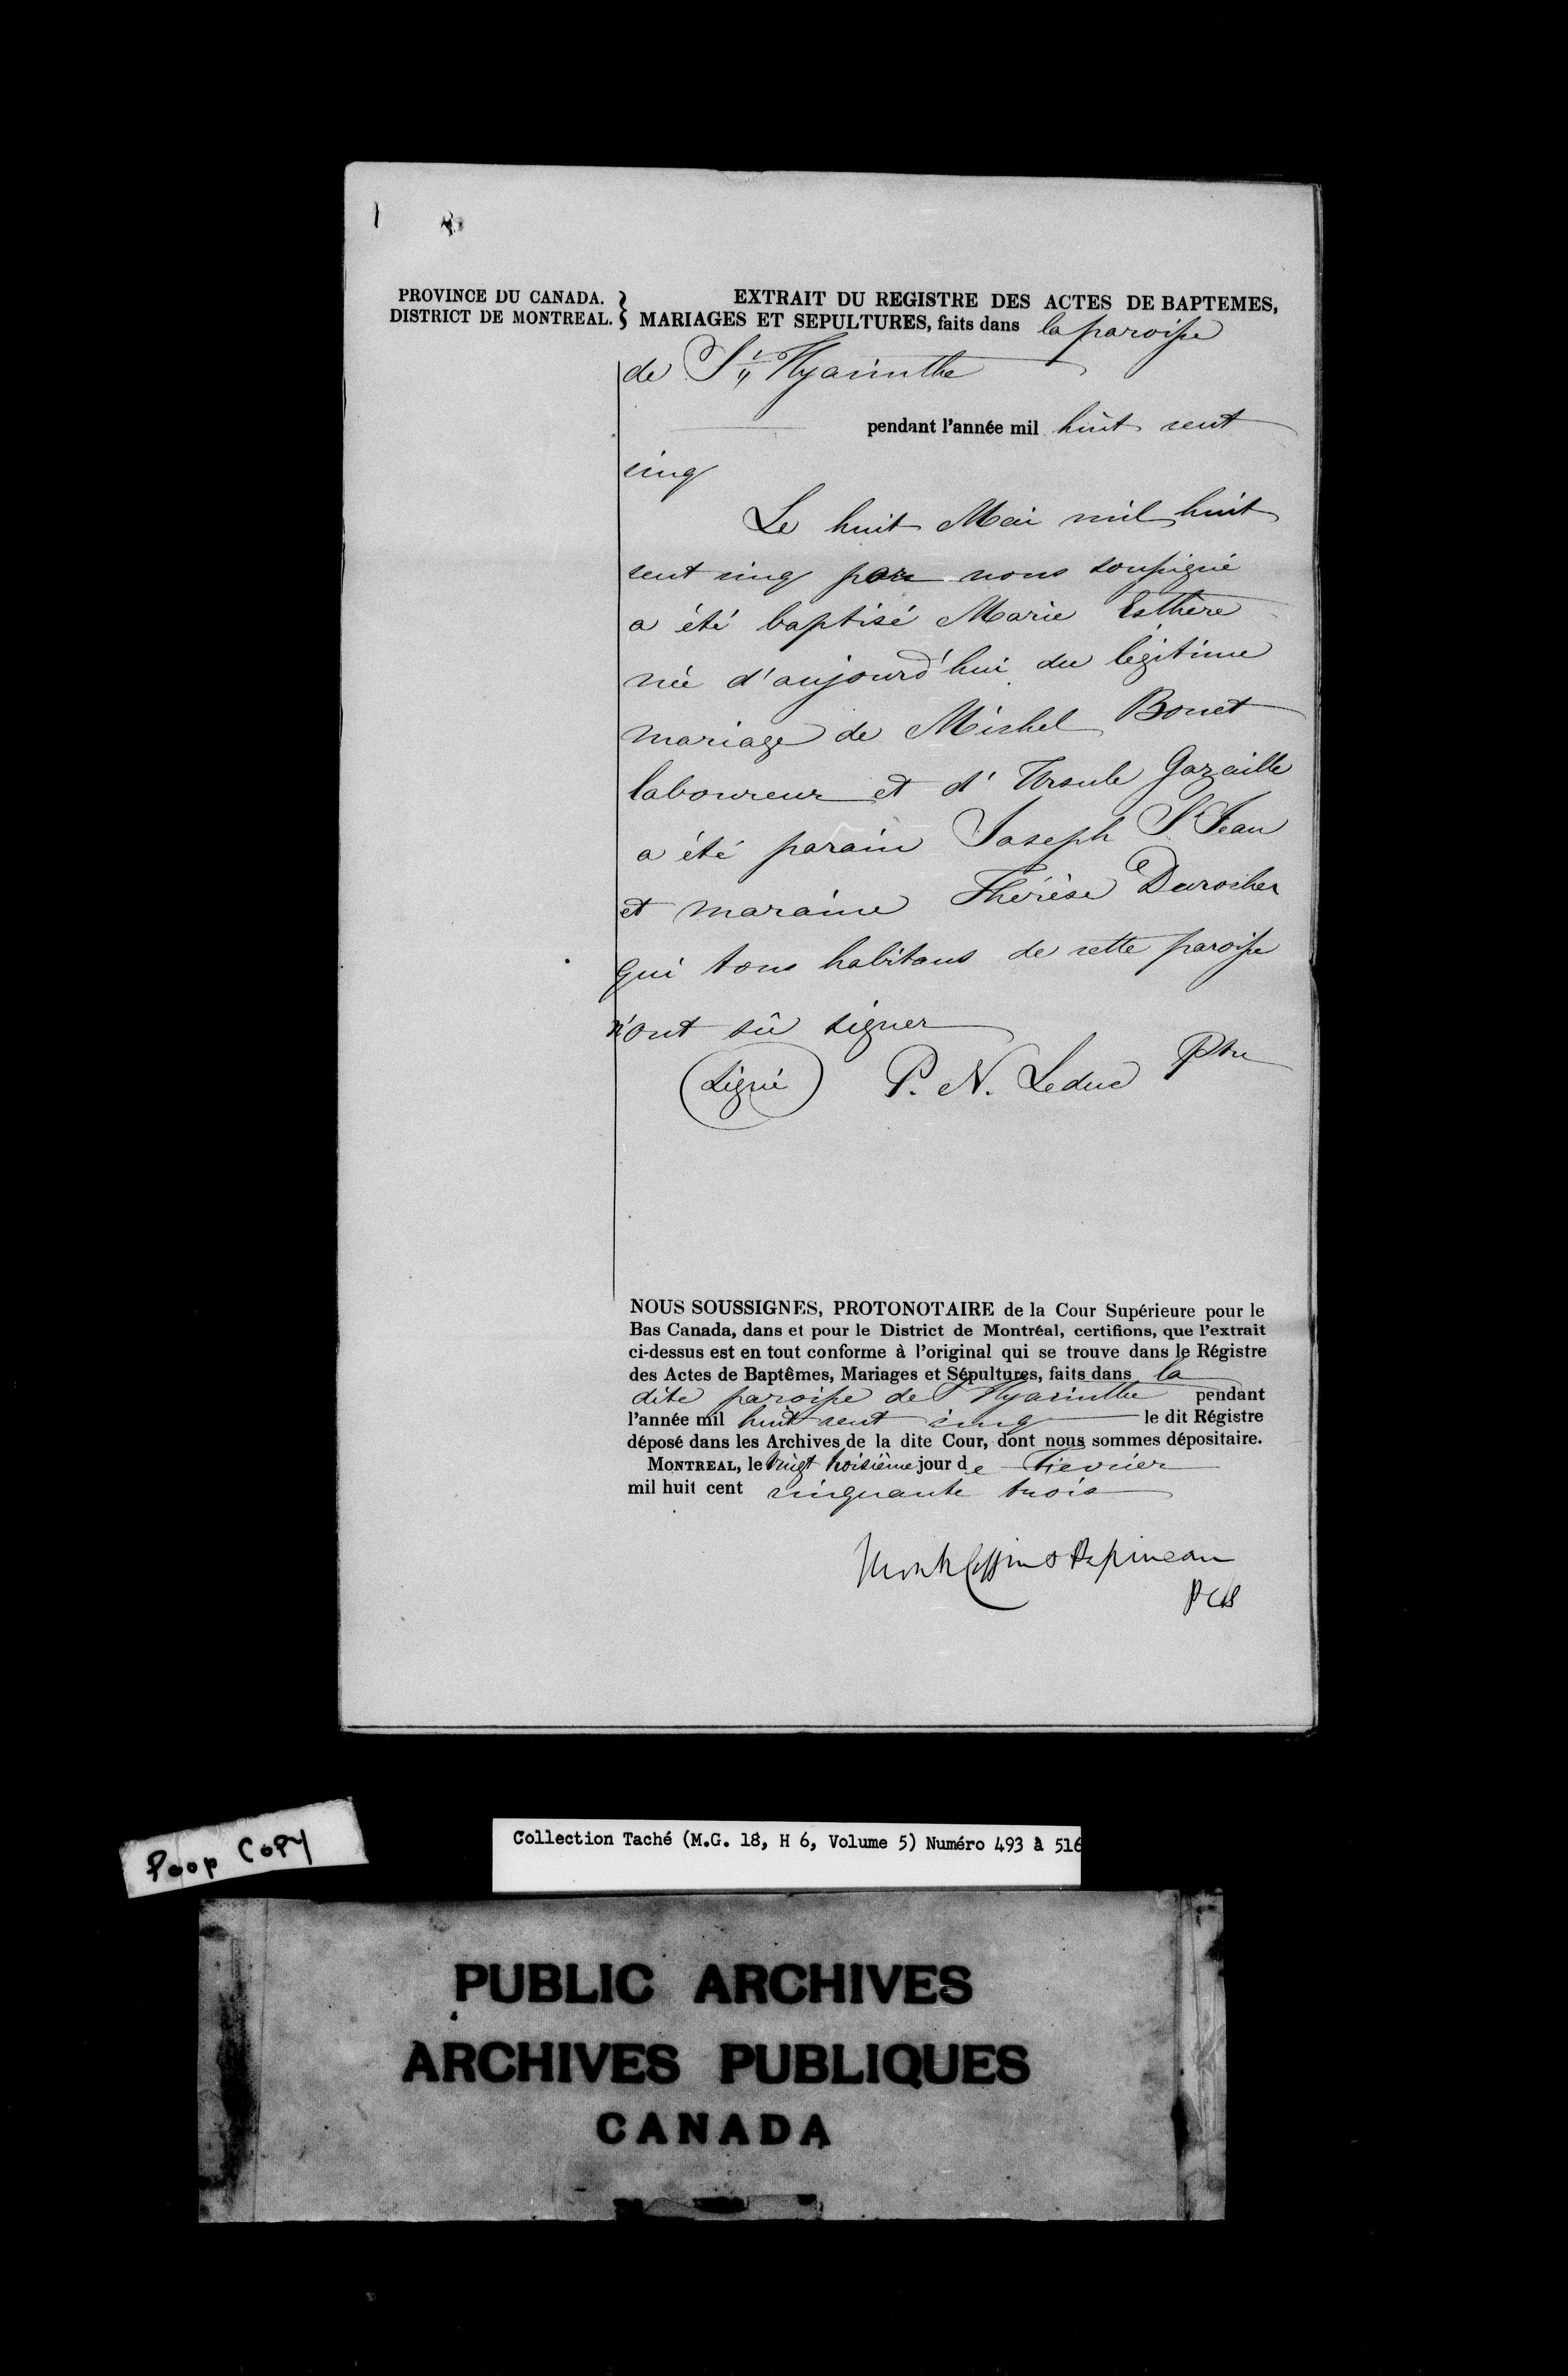 1
PROVINCE DU CANADA.
DISTRICT DE MONTREAL.
EXTRAIT DU REGISTRE DES ACTES DE BAPTEMES,
MARIAGES ET SEPULTURES, faits dans la paroisse
de St Hyacinthe
pendant l'année mil huit cent
cinq
Le huit Mai mil huit
cent cinq par nous soussigné
a été baptisé Marie Esthère
née d'aujourd'hui du légitime
mariage de Michel Bonet
laboureur et d'Ursule Gazaille
a été parain Joseph St Jean
et maraine Thérèse Durocher
qui tous habitans de cette paroisse
n'ont sû signer
(signé) P. N. Leduc Ptre
NOUS SOUSSIGNES, PROTONOTAIRE de la Cour Supérieure pour le
Bas Canada, dans et pour le District de Montréal, certifions, que l'extrait
ci-dessus est en tout conforme à l'original qui se trouve dans le Régistre
des Actes de Baptêmes, Mariages et Sépultures, faits dans la
dite paroisse de St Hyacinthe pendant
l'année mil huit cent cinq le dit Régistre
déposé dans les Archives de la dite Cour, dont nous sommes dépositaire.
MONTREAL, le vingt troisième jour de Fievrier
mil huit cent cinquante trois
Monk Coffin & Papineau
PCS
Poor COPY
Collection Taché (M.G. 18, H 6, Volume 5) Numéro 493 à 516
PUBLIC ARCHIVES
ARCHIVES PUBLIQUES
CANADA